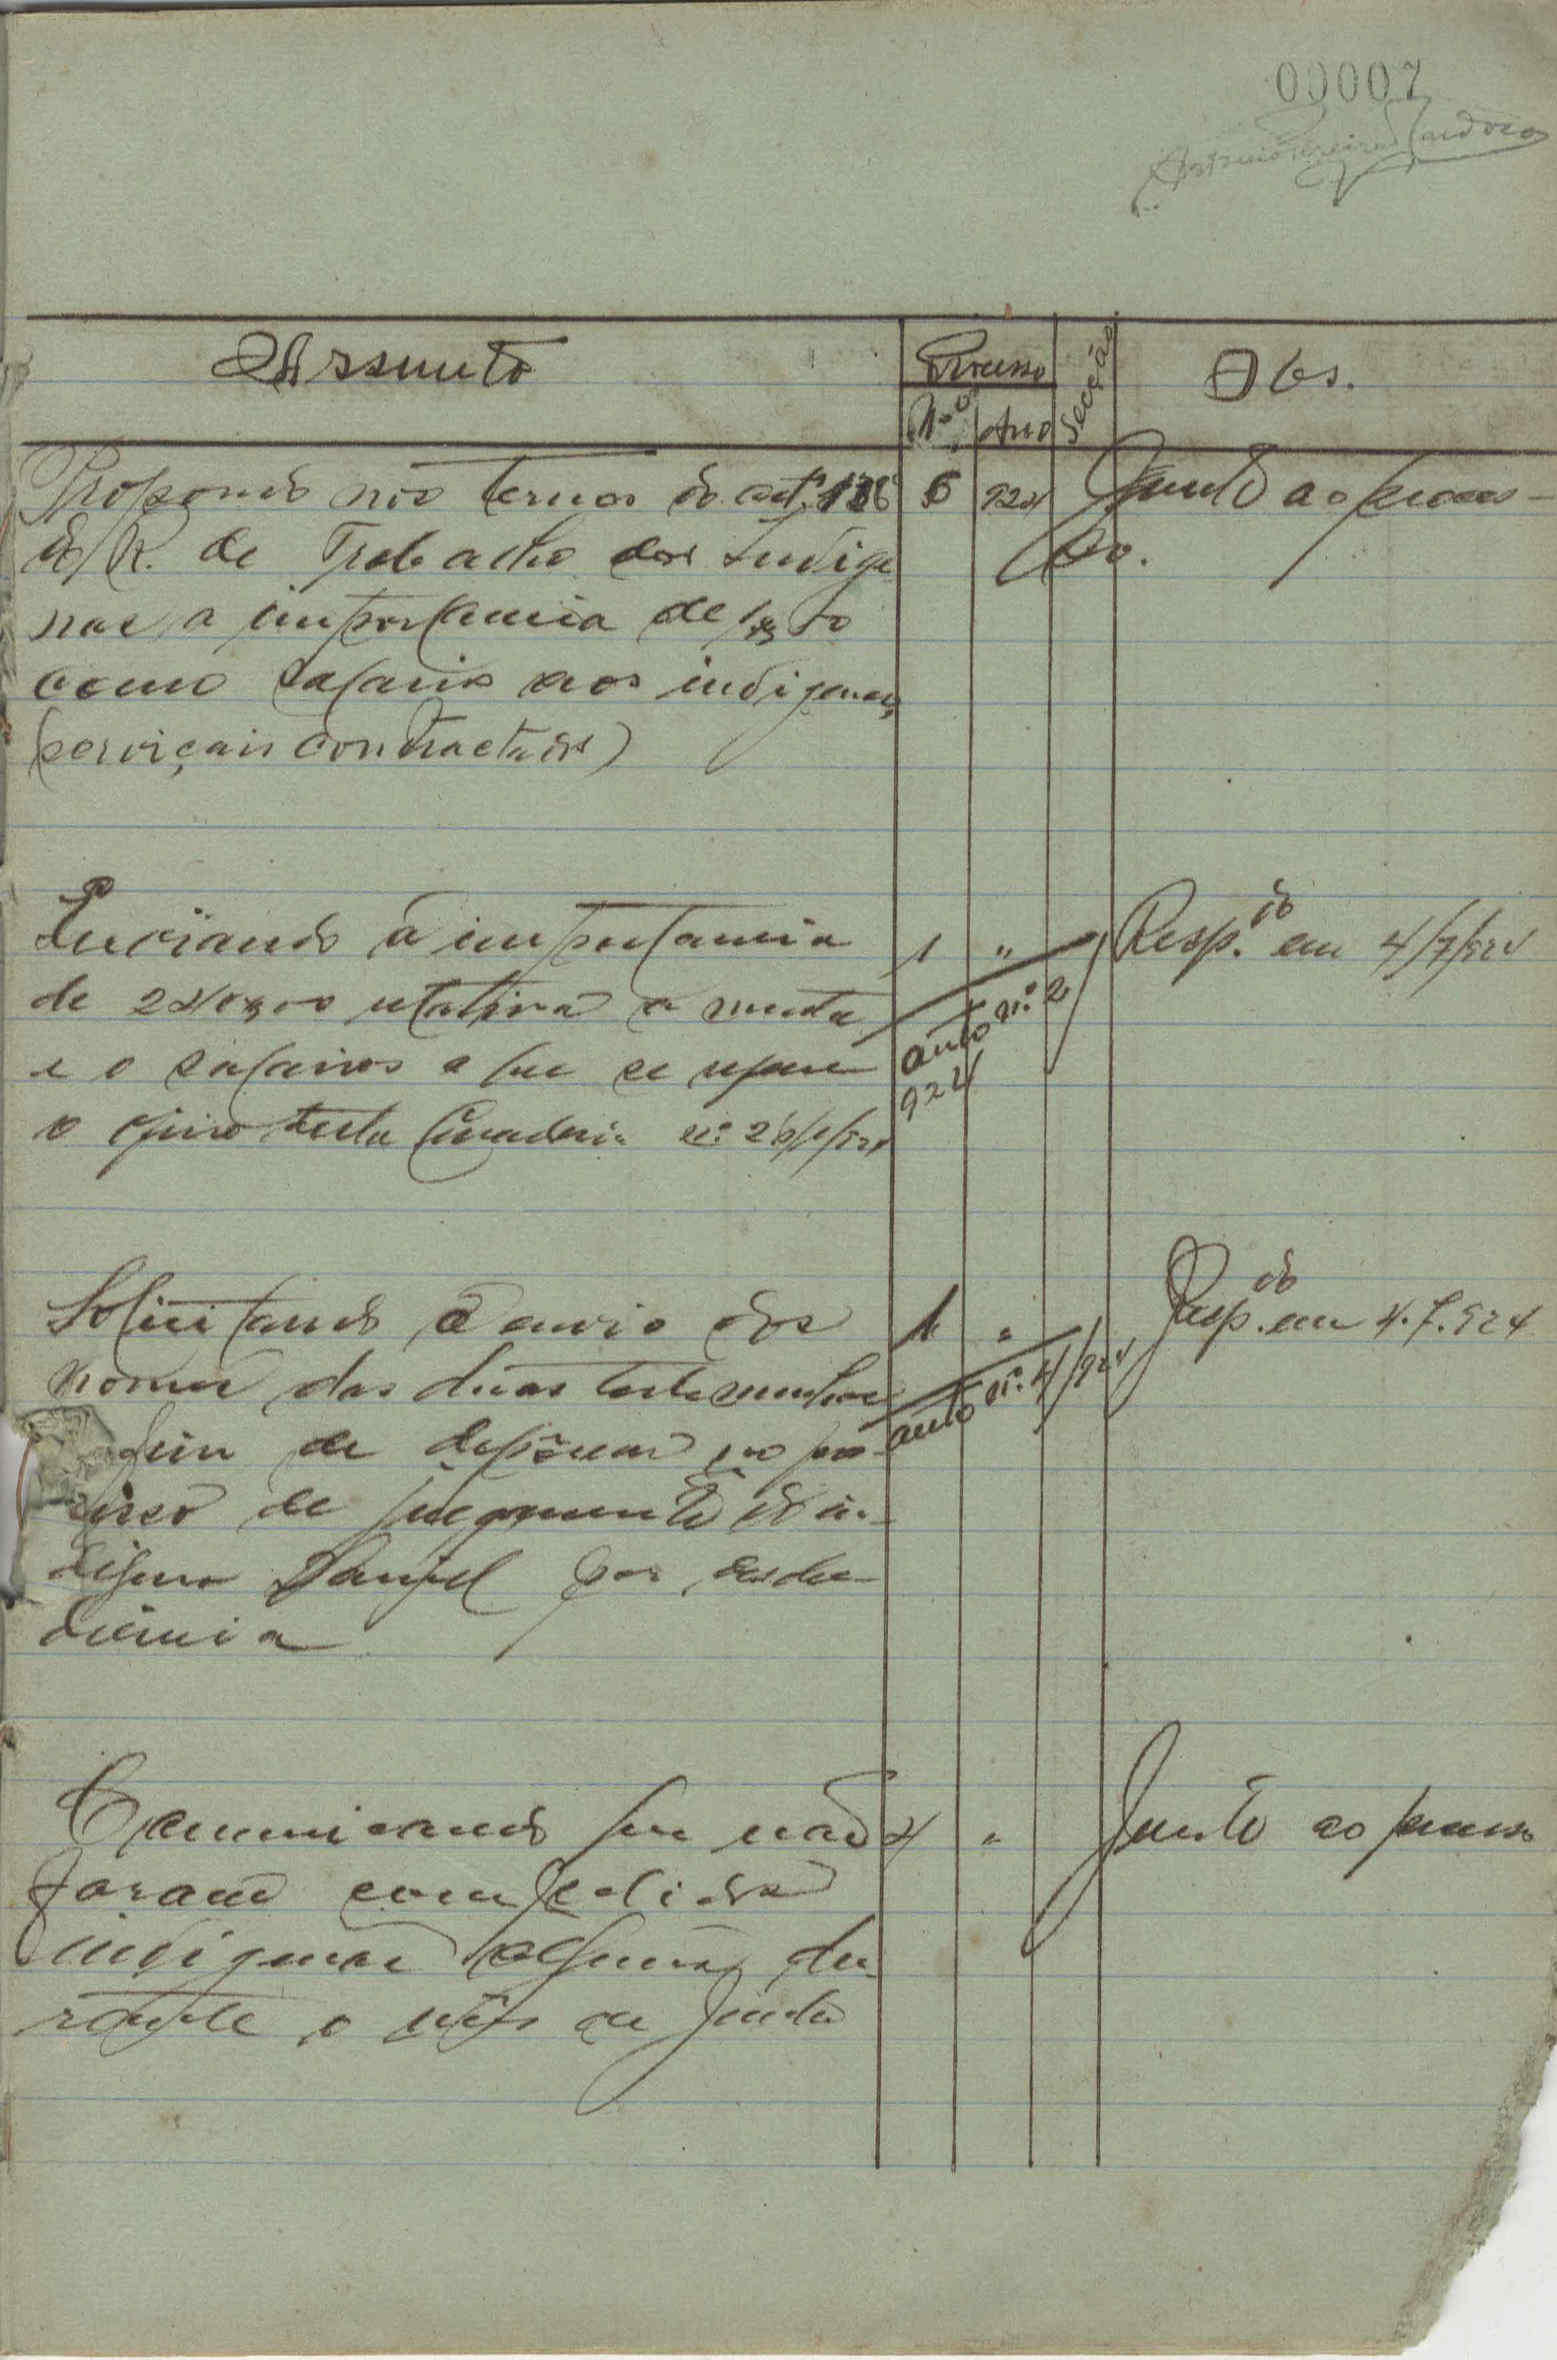 00007
Antonio Pereira Cardoso
Assunto
Processo
Secção
Obs.
N.º
Ano
Propondo nos termos do art.º 138
do R. de Trabalho dos Indige
nas a importancia de 1$50
como salario aos indigenas
(serviçais contractados)
6 924
Junto ao proces-
so.
Enviando a importancia
de 240$00 relativa a multa
e o salarios a que se refere
o oficio desta Curadoria n.º
1 "
auto n.º 2
924
Resp.do em 4/7/924
Solicitando o envio dos
nomes das duas testemunhas
fim de depôrem no pro
cesso de julgamento do in-
digena Daniel por desobe-
diencia
1 "
auto n.º 4/924
Resp.do em 4.7.924
Comunicando que não
foram compelidos
indigenas alguns du-
rante o mês de Junho
4 "
Junto ao processo